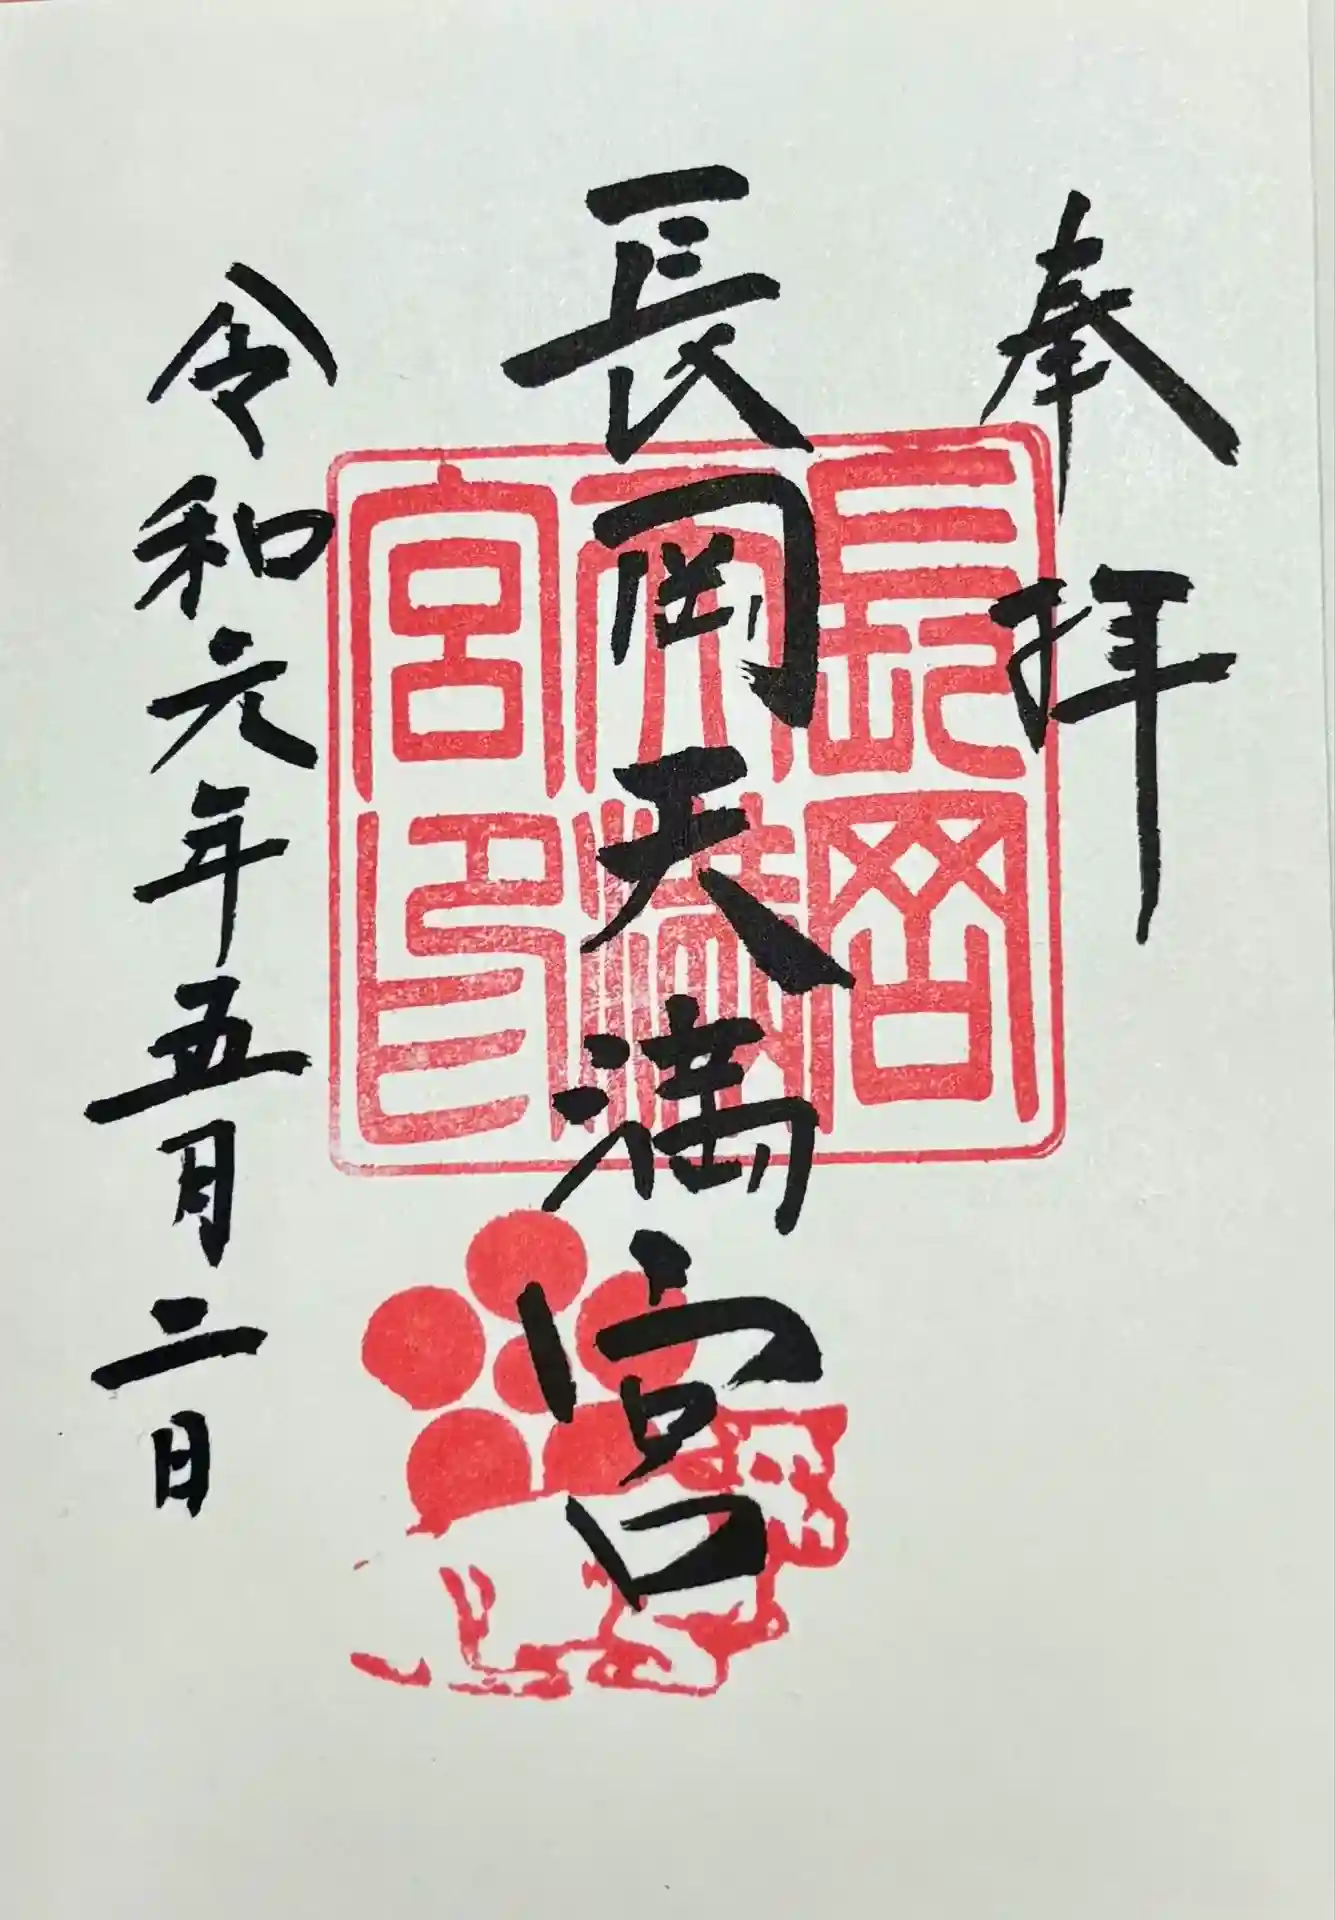 奉拝
長岡天満宮
令和元年五月二日
長岡
天満
宮印